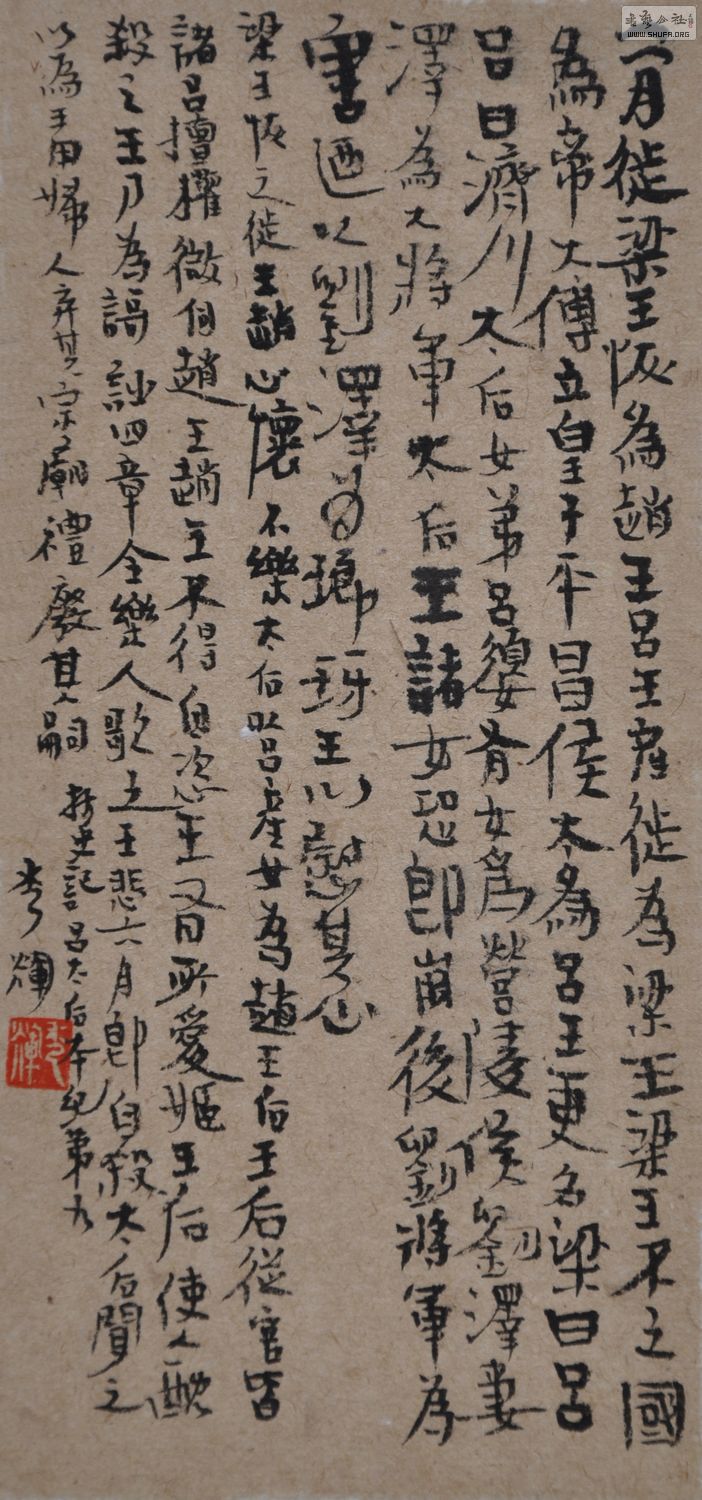 二月徙梁王恢為趙王呂王產徙為梁王梁王不之國
為帝大傅立皇子平昌侯太為呂王更名梁曰呂
呂曰濟川太后女弟呂嬃有女為營陵侯劉澤妻
澤為大將軍太后王諸女恐即崩後劉將軍為
害迺以劉澤為瑯琊王以慰其心
梁王恢之徙王趙心懷不樂太后以呂產女為趙王后王后從官皆
諸呂擅權微伺趙王趙王不得自恣王有所愛姬王后使人酖
殺之王乃為謌詩四章令樂人歌之王悲六月即自殺太后聞之
以為王用婦人棄其宗廟禮廢其嗣 抄史記呂太后本紀第九
輝
書藝公社
WWW.SHUFA.ORG